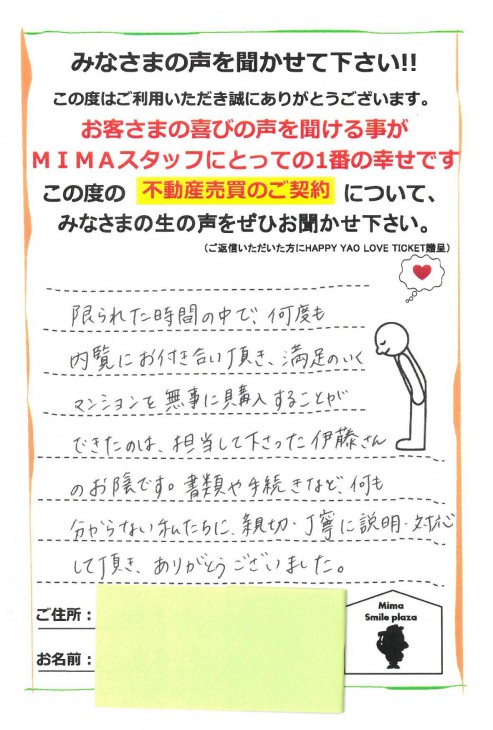 みなさまの声を聞かせて下さい!!
この度はご利用いただき誠にありがとうございます。
お客さまの喜びの声を聞ける事が
MIMAスタッフにとっての1番の幸せです
この度の 不動産売買のご契約 について、
みなさまの生の声をぜひお聞かせ下さい。
(ご返信いただいた方にHAPPY YAO LOVE TICKET贈呈)
限られた時間の中で、何度も
内覧にお付き合い頂き、満足のいく
マンションを無事に購入することが
できたのは、担当して下さった伊藤さん
のお陰です。書類や手続きなど、何も
分からない私たちに、親切・丁寧に説明・対応
して頂き、ありがとうございました。
ご住所：
お名前：
Mima
Smile plaza